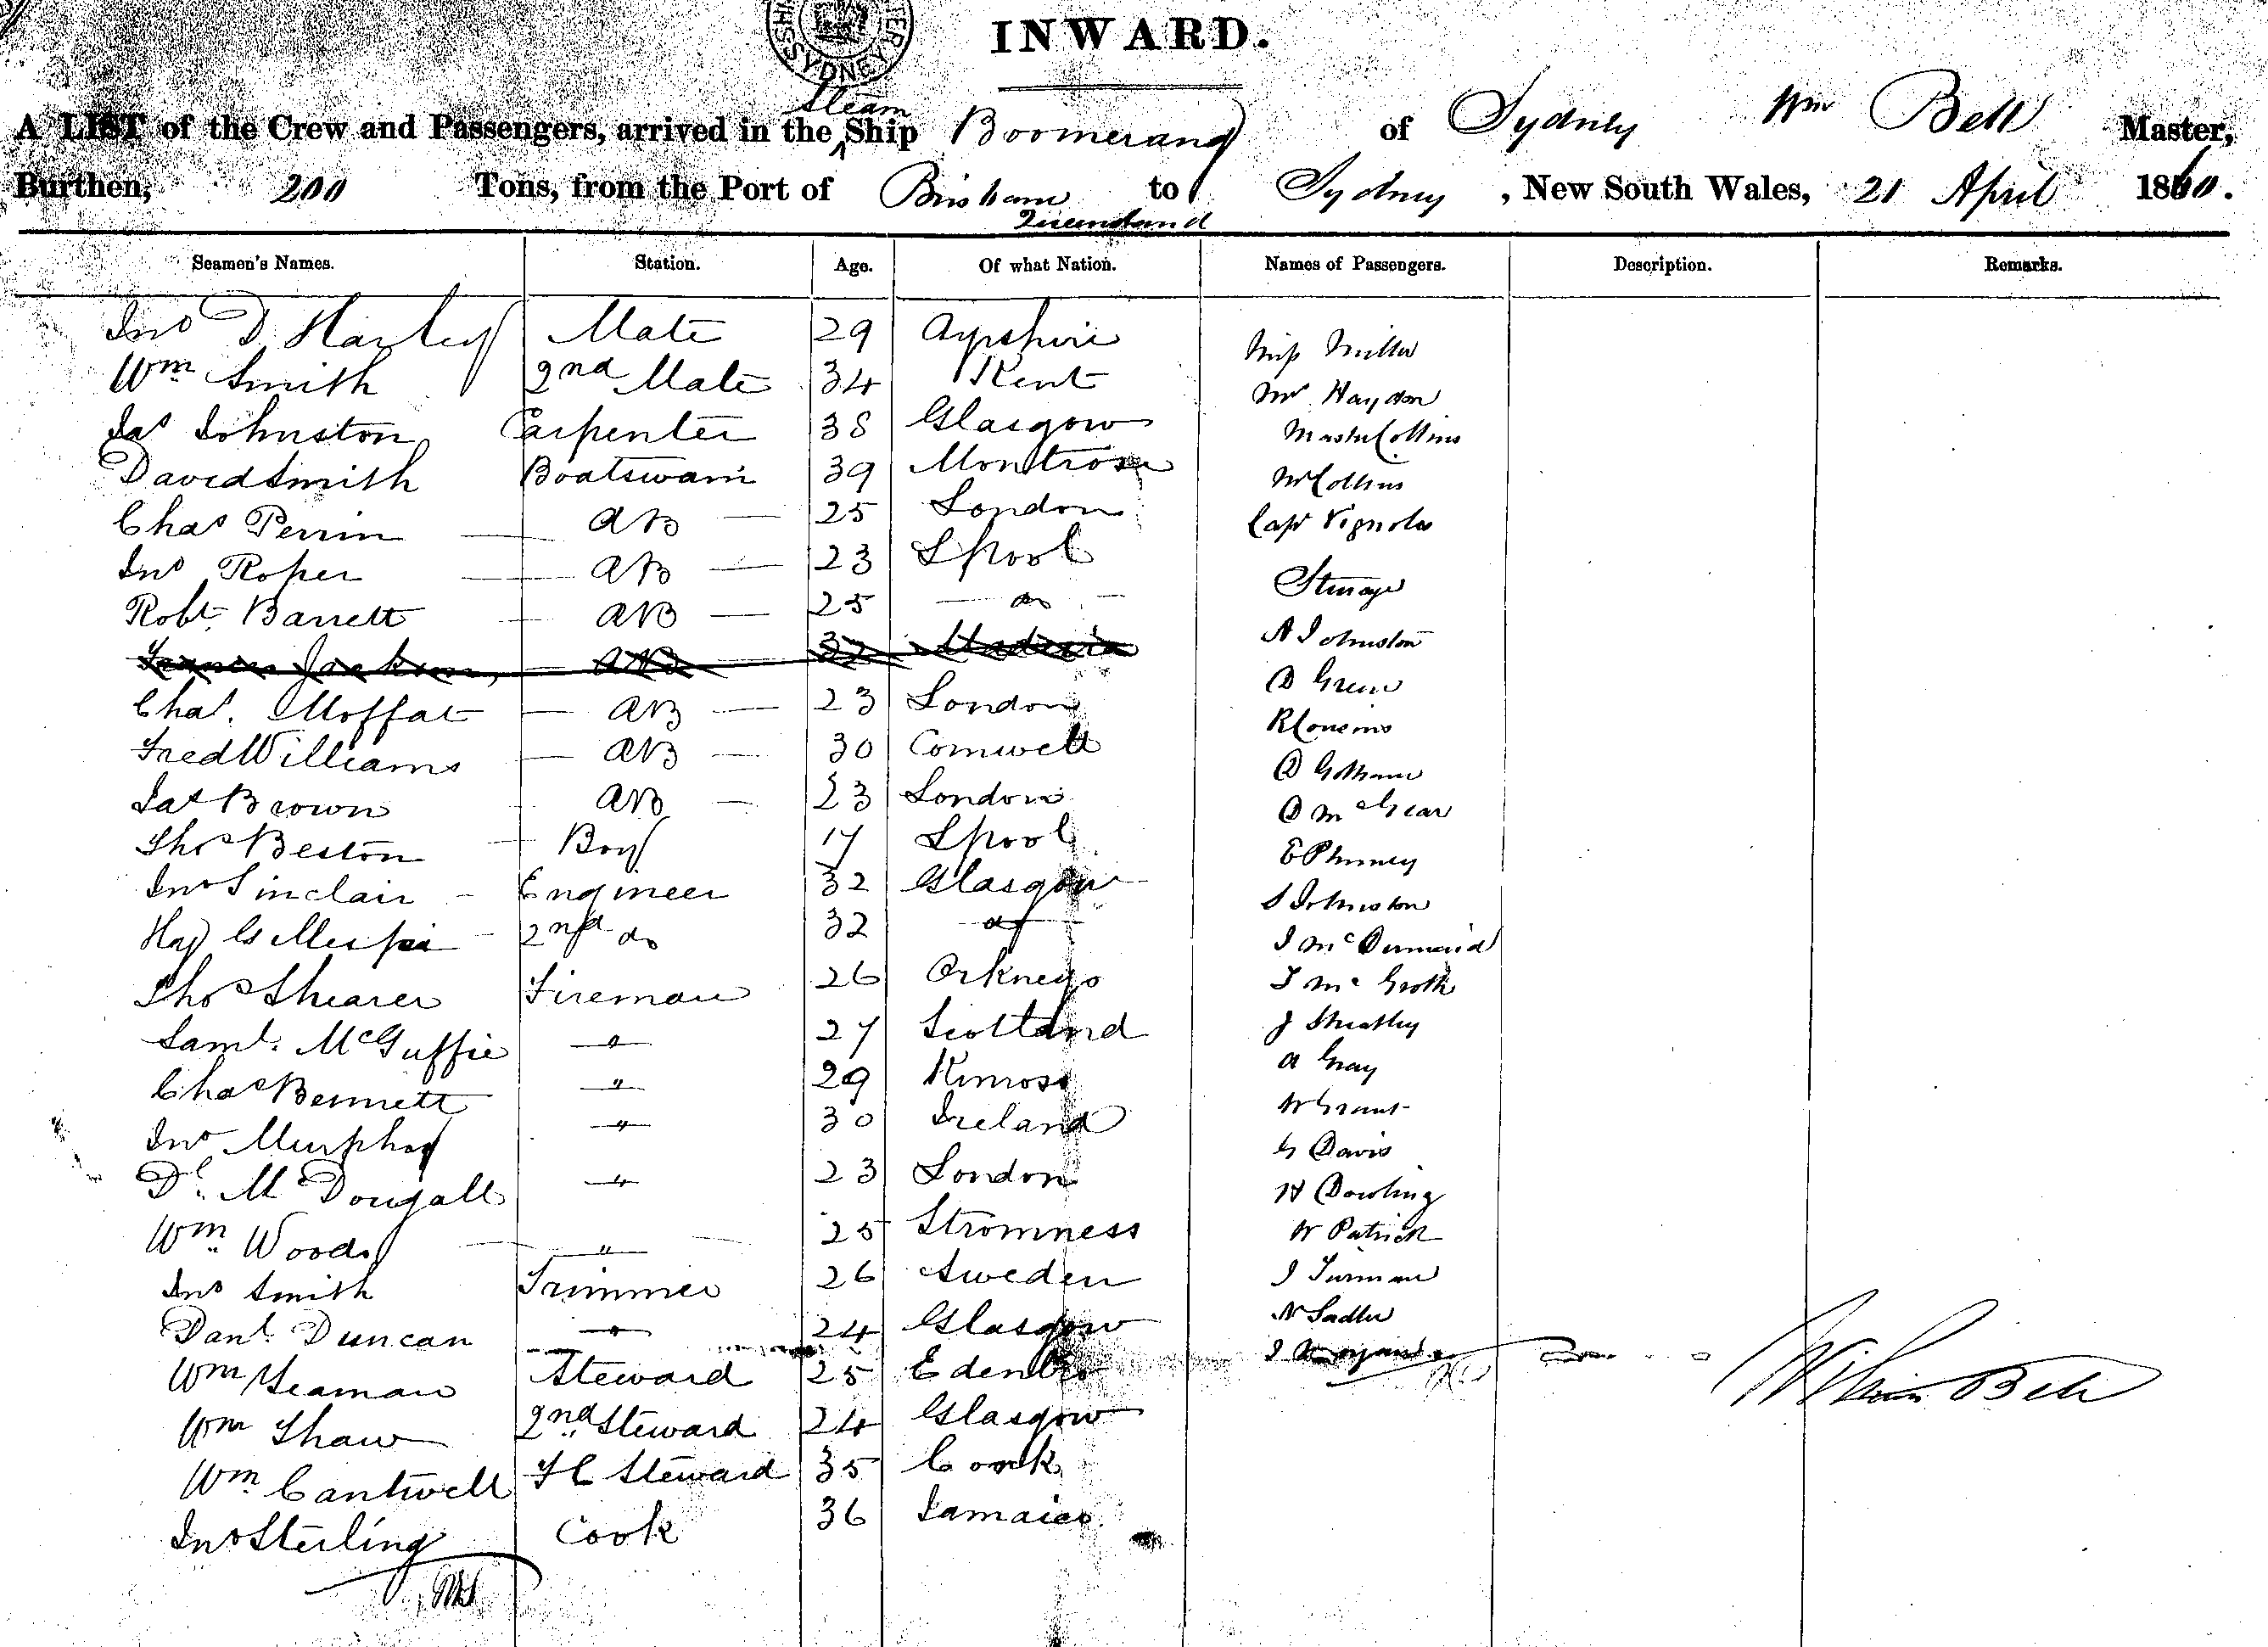 INWARD.
SYDNEY
Steam
A LIST of the Crew and Passengers, arrived in the Ship Boomerang of Sydney Wm Bell Master,
Burthen, 200 Tons, from the Port of Brisbane to Sydney, New South Wales, 21 April 1860.
Queensland
Seamen's Names. Station. Age. Of what Nation. Names of Passengers. Description. Remarks.
Jno D. Harley Mate 29 Ayrshire Miss Miller
Wm Smith 2nd Mate 34 Kent Mr Haydon
Jas Johnston Carpenter 38 Glasgow Master Collins
David Smith Boatswain 39 Montrose Mr Collins
Chas Perrin AB 25 London Capt Vignoles
Jno Roper AB 23 Lpool Steerage
Robt Barrett AB 25 do A Johnston
AB 32 D Green
Chas. Moffat AB 23 London R Cousins
Fred Williams AB 30 Cornwell D Gotham
Jas Brown AB 23 London D McGear
Thos Beston Boy 17 Lpool E Phinney
Jno Sinclair Engineer 32 Glasgow S Johnston
Gillespie 2nd do 32 do J McDermaid
Thos Shearer Fireman 26 Orkneys J Mc Groth
Saml. McGuffie " 27 Scotland J Sheatley
Chas Bennett " 29 Kinross A Gray
Jno Murphy " 30 Ireland W Grant
Dl. McDougall " 23 London G Davis
Wm Woods " 25 Stromness H Dowling
Jno Smith Trimmer 26 Sweden W Patrick
Danl. Duncan " 24 Glasgow J Turman
Wm Yeaman Steward 25 Edenbro N Sadler
Wm Shaw 2nd Steward 24 Glasgow J
Wm Cantwell F C Steward 35 Cork William Bell
Jno Sterling Cook 36 Jamaica